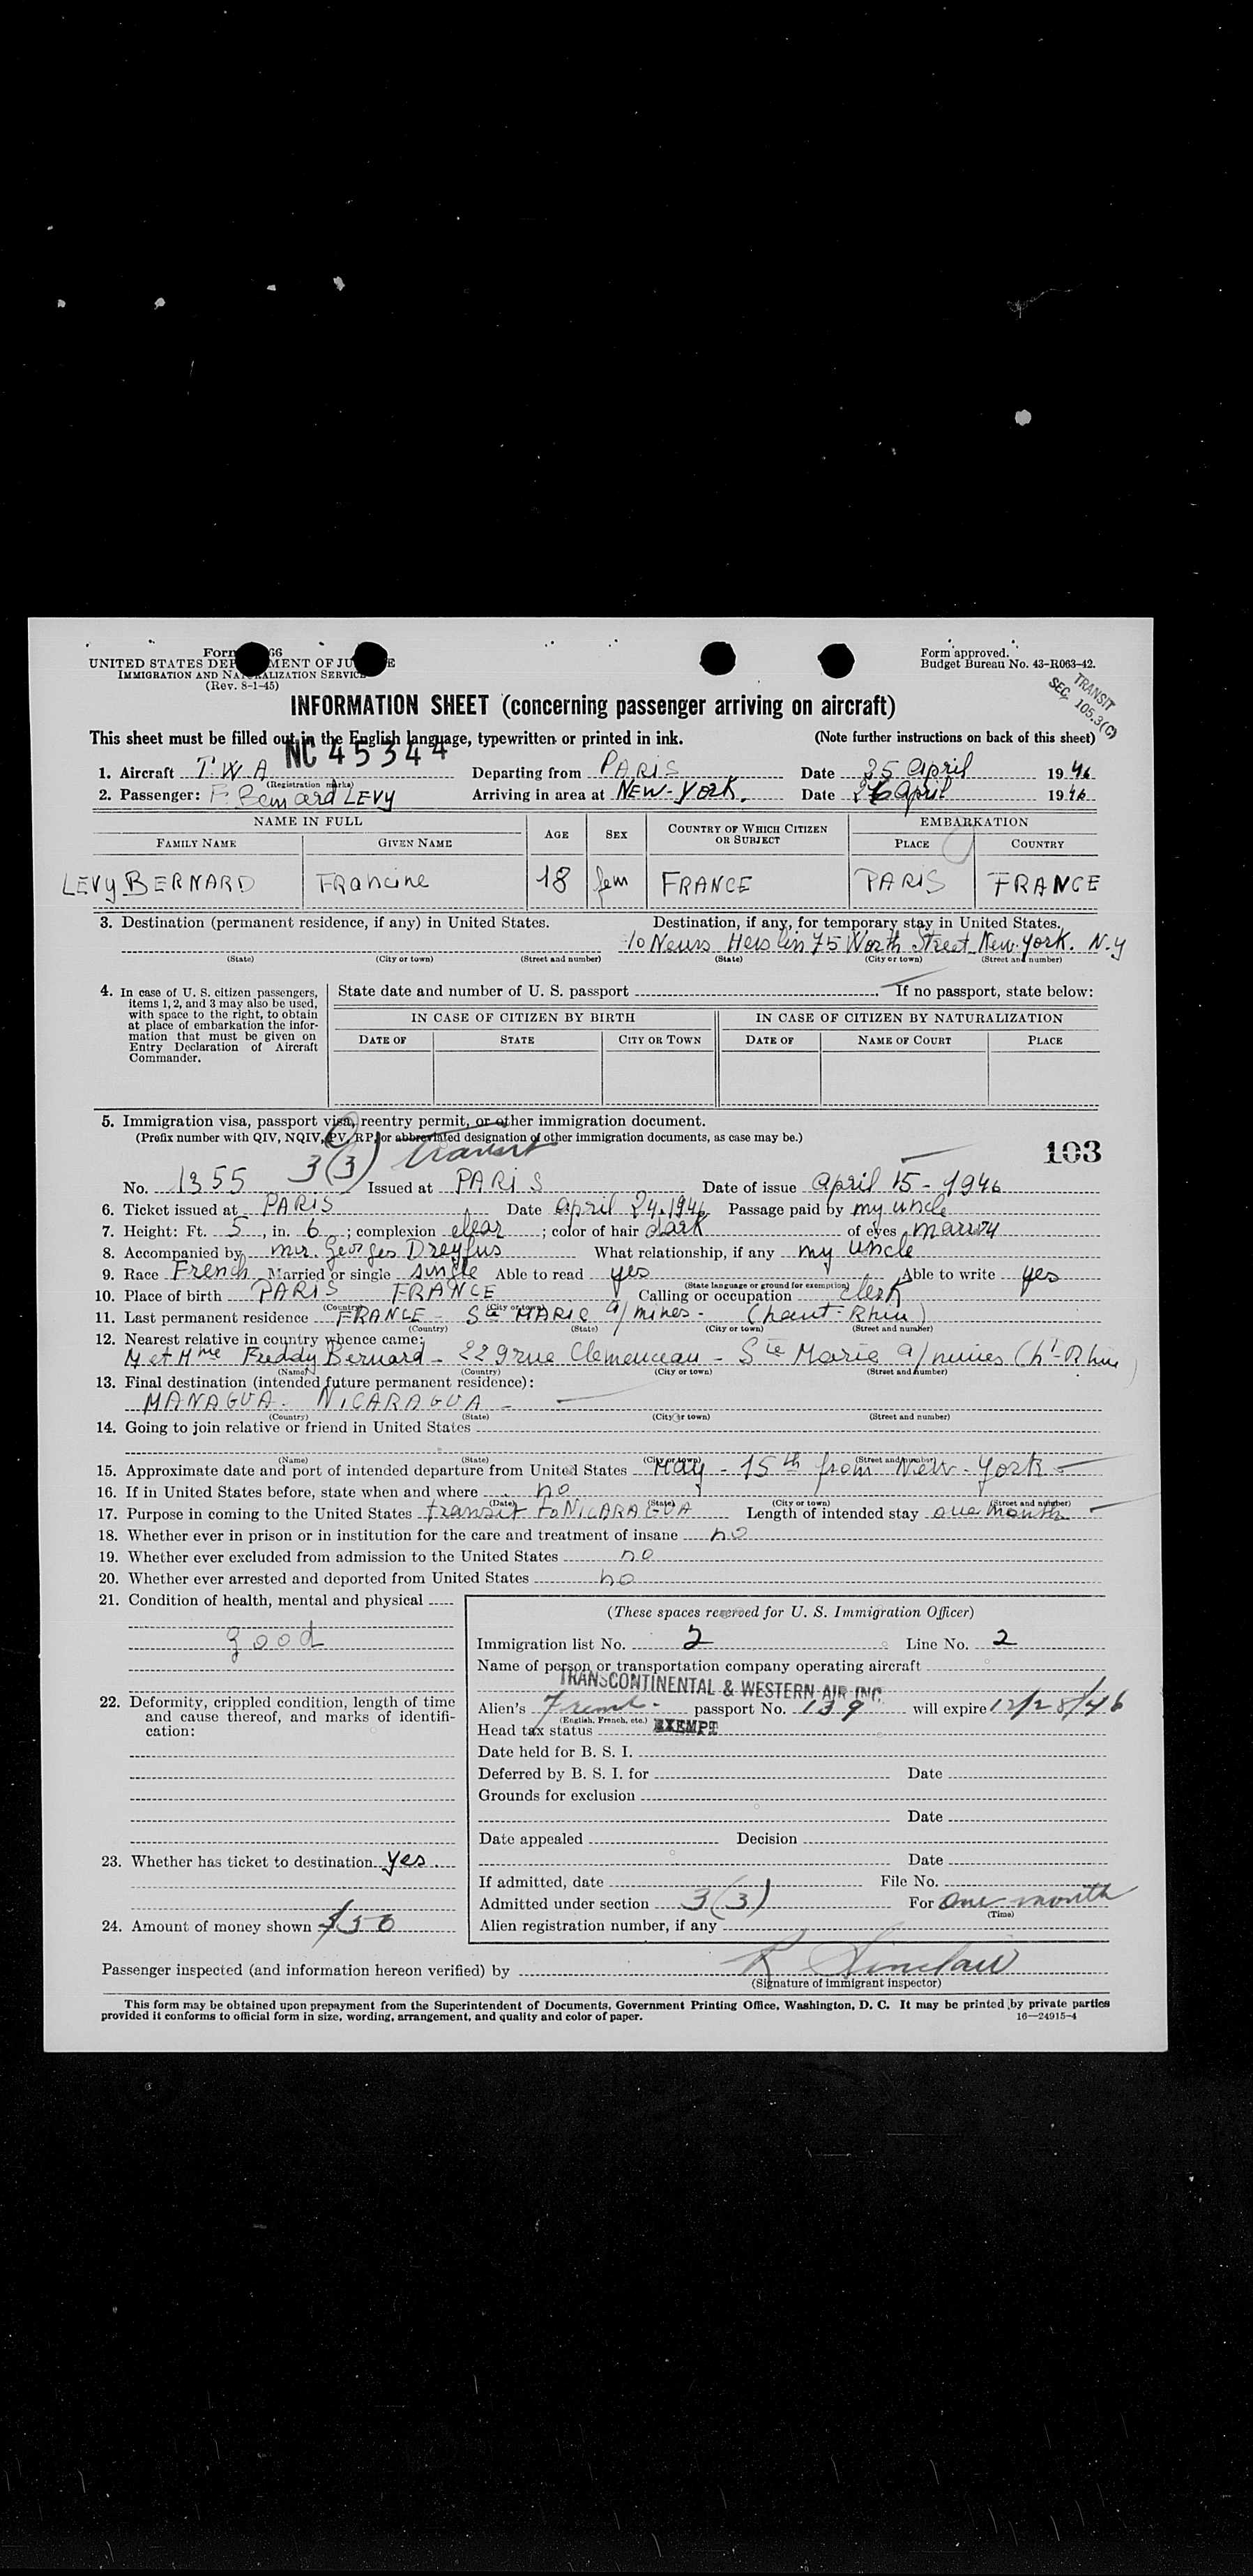 Form 66
Form approved.
UNITED STATES DEPARTMENT OF JUSTICE
Budget Bureau No. 43-R063-42.
IMMIGRATION AND NATURALIZATION SERVICE
(Rev. 8-1-45)
TRANSIT
SEC. 105.3(C)
INFORMATION SHEET (concerning passenger arriving on aircraft)
This sheet must be filled out in the English language, typewritten or printed in ink. (Note further instructions on back of this sheet)
NC 45344
1. Aircraft T.W.A Departing from PARIS Date 25 april 1946
(Registration marks)
2. Passenger: F. Bernard LEVY Arriving in area at NEW-YORK. Date 26 April 1946
NAME IN FULL AGE SEX COUNTRY OF WHICH CITIZEN OR SUBJECT EMBARKATION
FAMILY NAME GIVEN NAME PLACE COUNTRY
LEVY BERNARD Francine 18 fem FRANCE PARIS FRANCE
3. Destination (permanent residence, if any) in United States. Destination, if any, for temporary stay in United States.
75 Worth Street New-York. N.Y
(State) (City or town) (Street and number) (State) (City or town) (Street and number)
4. In case of U. S. citizen passengers, items 1, 2, and 3 may also be used, with space to the right, to obtain at place of embarkation the information that must be given on Entry Declaration of Aircraft Commander.
State date and number of U. S. passport If no passport, state below:
IN CASE OF CITIZEN BY BIRTH IN CASE OF CITIZEN BY NATURALIZATION
DATE OF STATE CITY OR TOWN DATE OF NAME OF COURT PLACE
5. Immigration visa, passport visa, reentry permit, or other immigration document.
(Prefix number with QIV, NQIV, PV, RP, or abbreviated designation of other immigration documents, as case may be.)
3(3) transit
103
No. 1355 Issued at PARIS Date of issue april 15-1946
6. Ticket issued at PARIS Date april 24.1946 Passage paid by my uncle
7. Height: Ft. 5, in. 6; complexion clear; color of hair dark of eyes marron
8. Accompanied by mr. Georges Dreyfus What relationship, if any my uncle
9. Race French Married or single single Able to read yes Able to write yes
(State language or ground for exemption)
10. Place of birth PARIS FRANCE Calling or occupation clerk
(Country) (City or town)
11. Last permanent residence FRANCE - Ste MARIE a/mines - (haut-Rhin)
(Country) (State) (City or town) (Street and number)
12. Nearest relative in country whence came:
M et Mme Freddy Bernard - 229 rue Clemenceau - Ste Marie a/mines (ht-Rhin)
(Name) (Country) (City or town) (Street and number)
13. Final destination (intended future permanent residence):
MANAGUA - NICARAGUA -
(Country) (State) (City or town) (Street and number)
14. Going to join relative or friend in United States
(Name) (State) (City or town) (Street and number)
15. Approximate date and port of intended departure from United States May - 15th from New-York -
16. If in United States before, state when and where no
(Date) (State) (City or town) (Street and number)
17. Purpose in coming to the United States transit to NICARAGUA Length of intended stay one month
18. Whether ever in prison or in institution for the care and treatment of insane no
19. Whether ever excluded from admission to the United States no
20. Whether ever arrested and deported from United States no
21. Condition of health, mental and physical
good
22. Deformity, crippled condition, length of time and cause thereof, and marks of identification:
23. Whether has ticket to destination yes.
24. Amount of money shown $50
(These spaces reserved for U. S. Immigration Officer)
Immigration list No. 2 Line No. 2
Name of person or transportation company operating aircraft
TRANSCONTINENTAL & WESTERN AIR INC.
Alien's French passport No. 139 will expire 12/28/46
(English, French, etc.)
Head tax status EXEMPT
Date held for B. S. I.
Deferred by B. S. I. for Date
Grounds for exclusion
Date
Date appealed Decision
Date
If admitted, date File No.
Admitted under section 3(3) For One month
(Time)
Alien registration number, if any
Passenger inspected (and information hereon verified) by R Sinclair
(Signature of immigrant inspector)
This form may be obtained upon prepayment from the Superintendent of Documents, Government Printing Office, Washington, D. C. It may be printed by private parties
provided it conforms to official form in size, wording, arrangement, and quality and color of paper. 16—24915-4